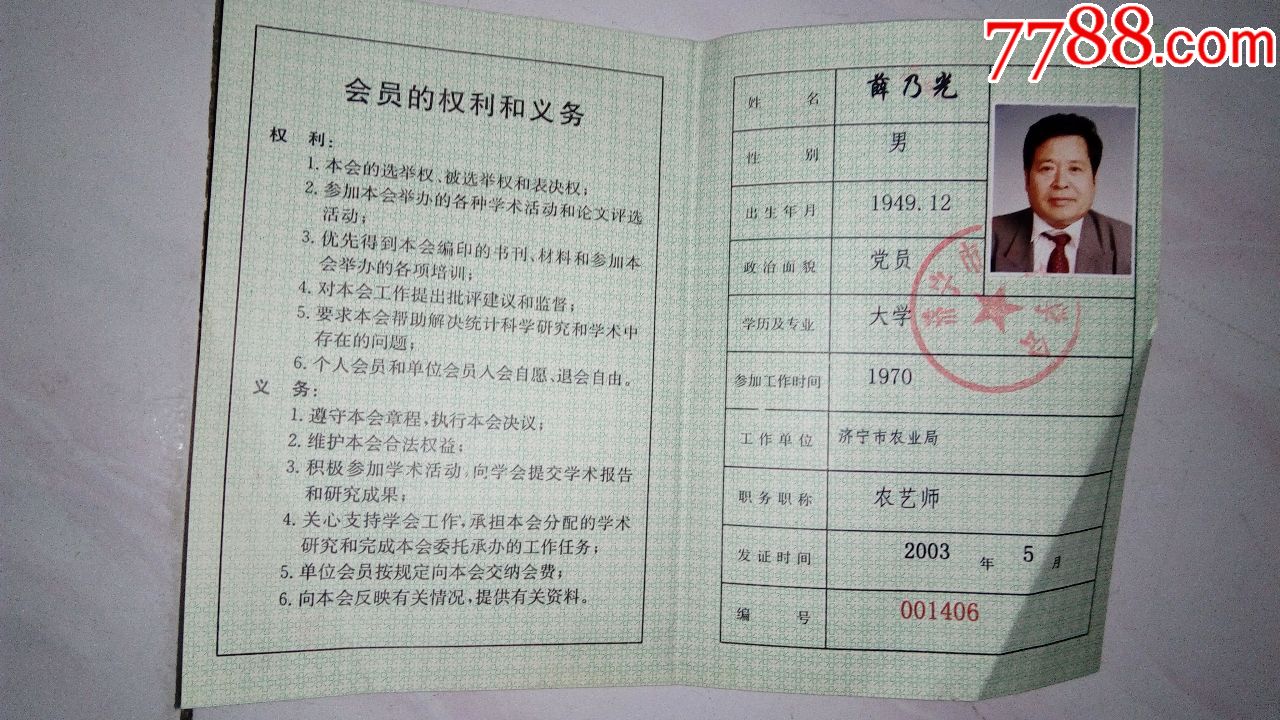 7788.com
会员的权利和义务
权 利:
1. 本会的选举权、被选举权和表决权;
2. 参加本会举办的各种学术活动和论文评选
活动;
3. 优先得到本会编印的书刊、材料和参加本
会举办的各项培训;
4. 对本会工作提出批评建议和监督;
5. 要求本会帮助解决统计科学研究和学术中
存在的问题;
6. 个人会员和单位会员入会自愿、退会自由。
义 务:
1. 遵守本会章程,执行本会决议;
2. 维护本会合法权益;
3. 积极参加学术活动,向学会提交学术报告
和研究成果;
4. 关心支持学会工作,承担本会分配的学术
研究和完成本会委托承办的工作任务;
5. 单位会员按规定向本会交纳会费;
6. 向本会反映有关情况,提供有关资料。
姓 名 薛乃光
性 别 男
出生年月 1949.12
政治面貌 党员
学历及专业 大学
参加工作时间 1970
工作单位 济宁市农业局
职务职称 农艺师
发证时间 2003 年 5 月
编 号 001406